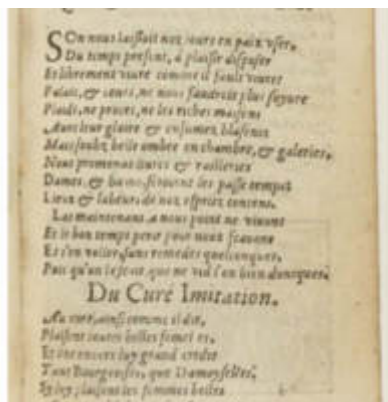 SOn nous laissoit noz iours en paix vser,
Du temps present, a plaisir disposer
Et librement viure comme il fault viure
Palais, & cours, ne nous faudroit plus suyure
Plaids, ne proces, ne les riches maisons
Auec leur gloire & enfumez blasons
Mais soubz belle ombre en chambre, & galeries,
Nous promenans liures & railleries
Dames, & bains, seroient les passe temps
Lieux & labeurs de noz espritz contens.
Las maintenant a nous point ne viuons
Et le bon temps perir pour nous scauons
Et s'en voller, sans remedes quelconques,
Puis qu'on le scait, que ne vid l'on bien doncques?
Du Curé Imitation.
Au curé, ainsi comme il dit,
Plaisent toutes belles femelles,
Et ont enuers luy grand credit
Tant Bourgeoises, que Damoyselles,
Si luy plaisent les femmes belles